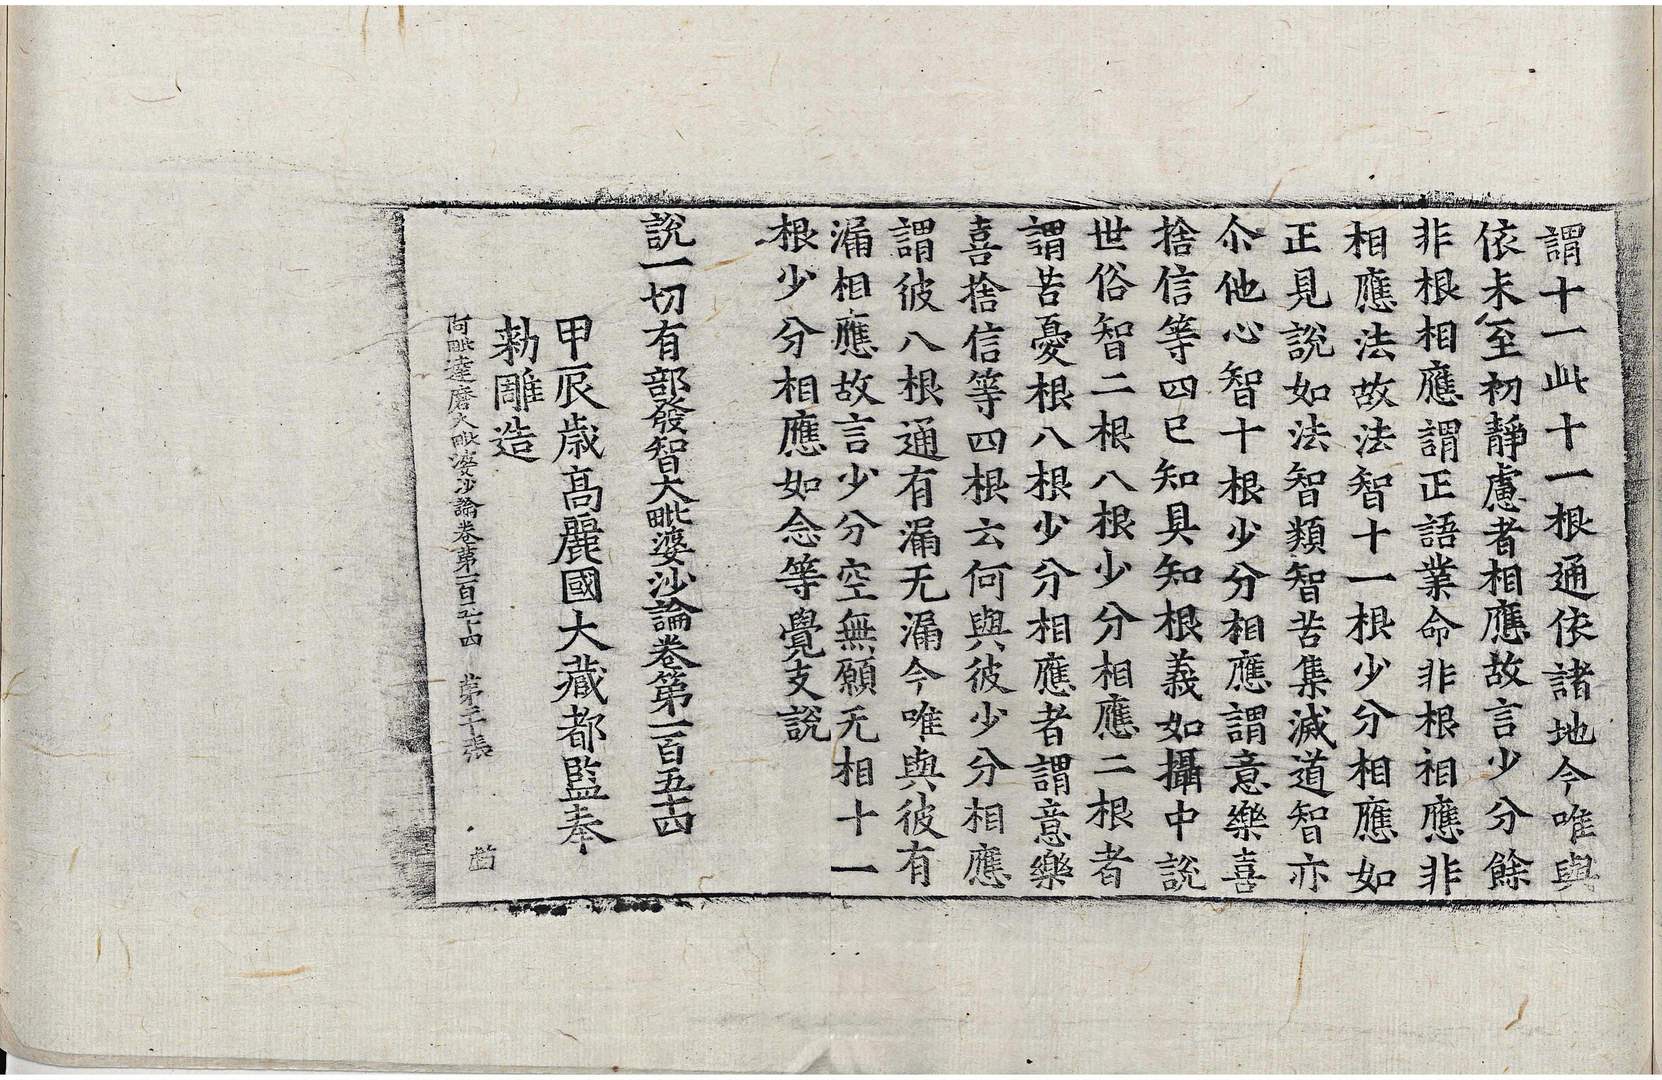 謂十一此十一根通依諸地今唯與
依未至初靜慮者相應故言少分餘
非根相應謂正語業命非根相應非
相應法故法智十一根少分相應如
正見說如法智類智苦集滅道智亦
尒他心智十根少分相應謂意樂喜
捨信等四已知具知根義如攝中說
世俗智二根八根少分相應二根者
謂苦憂根八根少分相應者謂意樂
喜捨信等四根云何與彼少分相應
謂彼八根通有漏无漏今唯與彼有
漏相應故言少分空無願无相十一
根少分相應如念等覺支說
說一切有部發智大毗婆沙論卷第一百五十四
甲辰歲高麗國大藏都監奉
勑雕造
阿毗達磨大毗婆沙論卷第一百五十四 第二十張